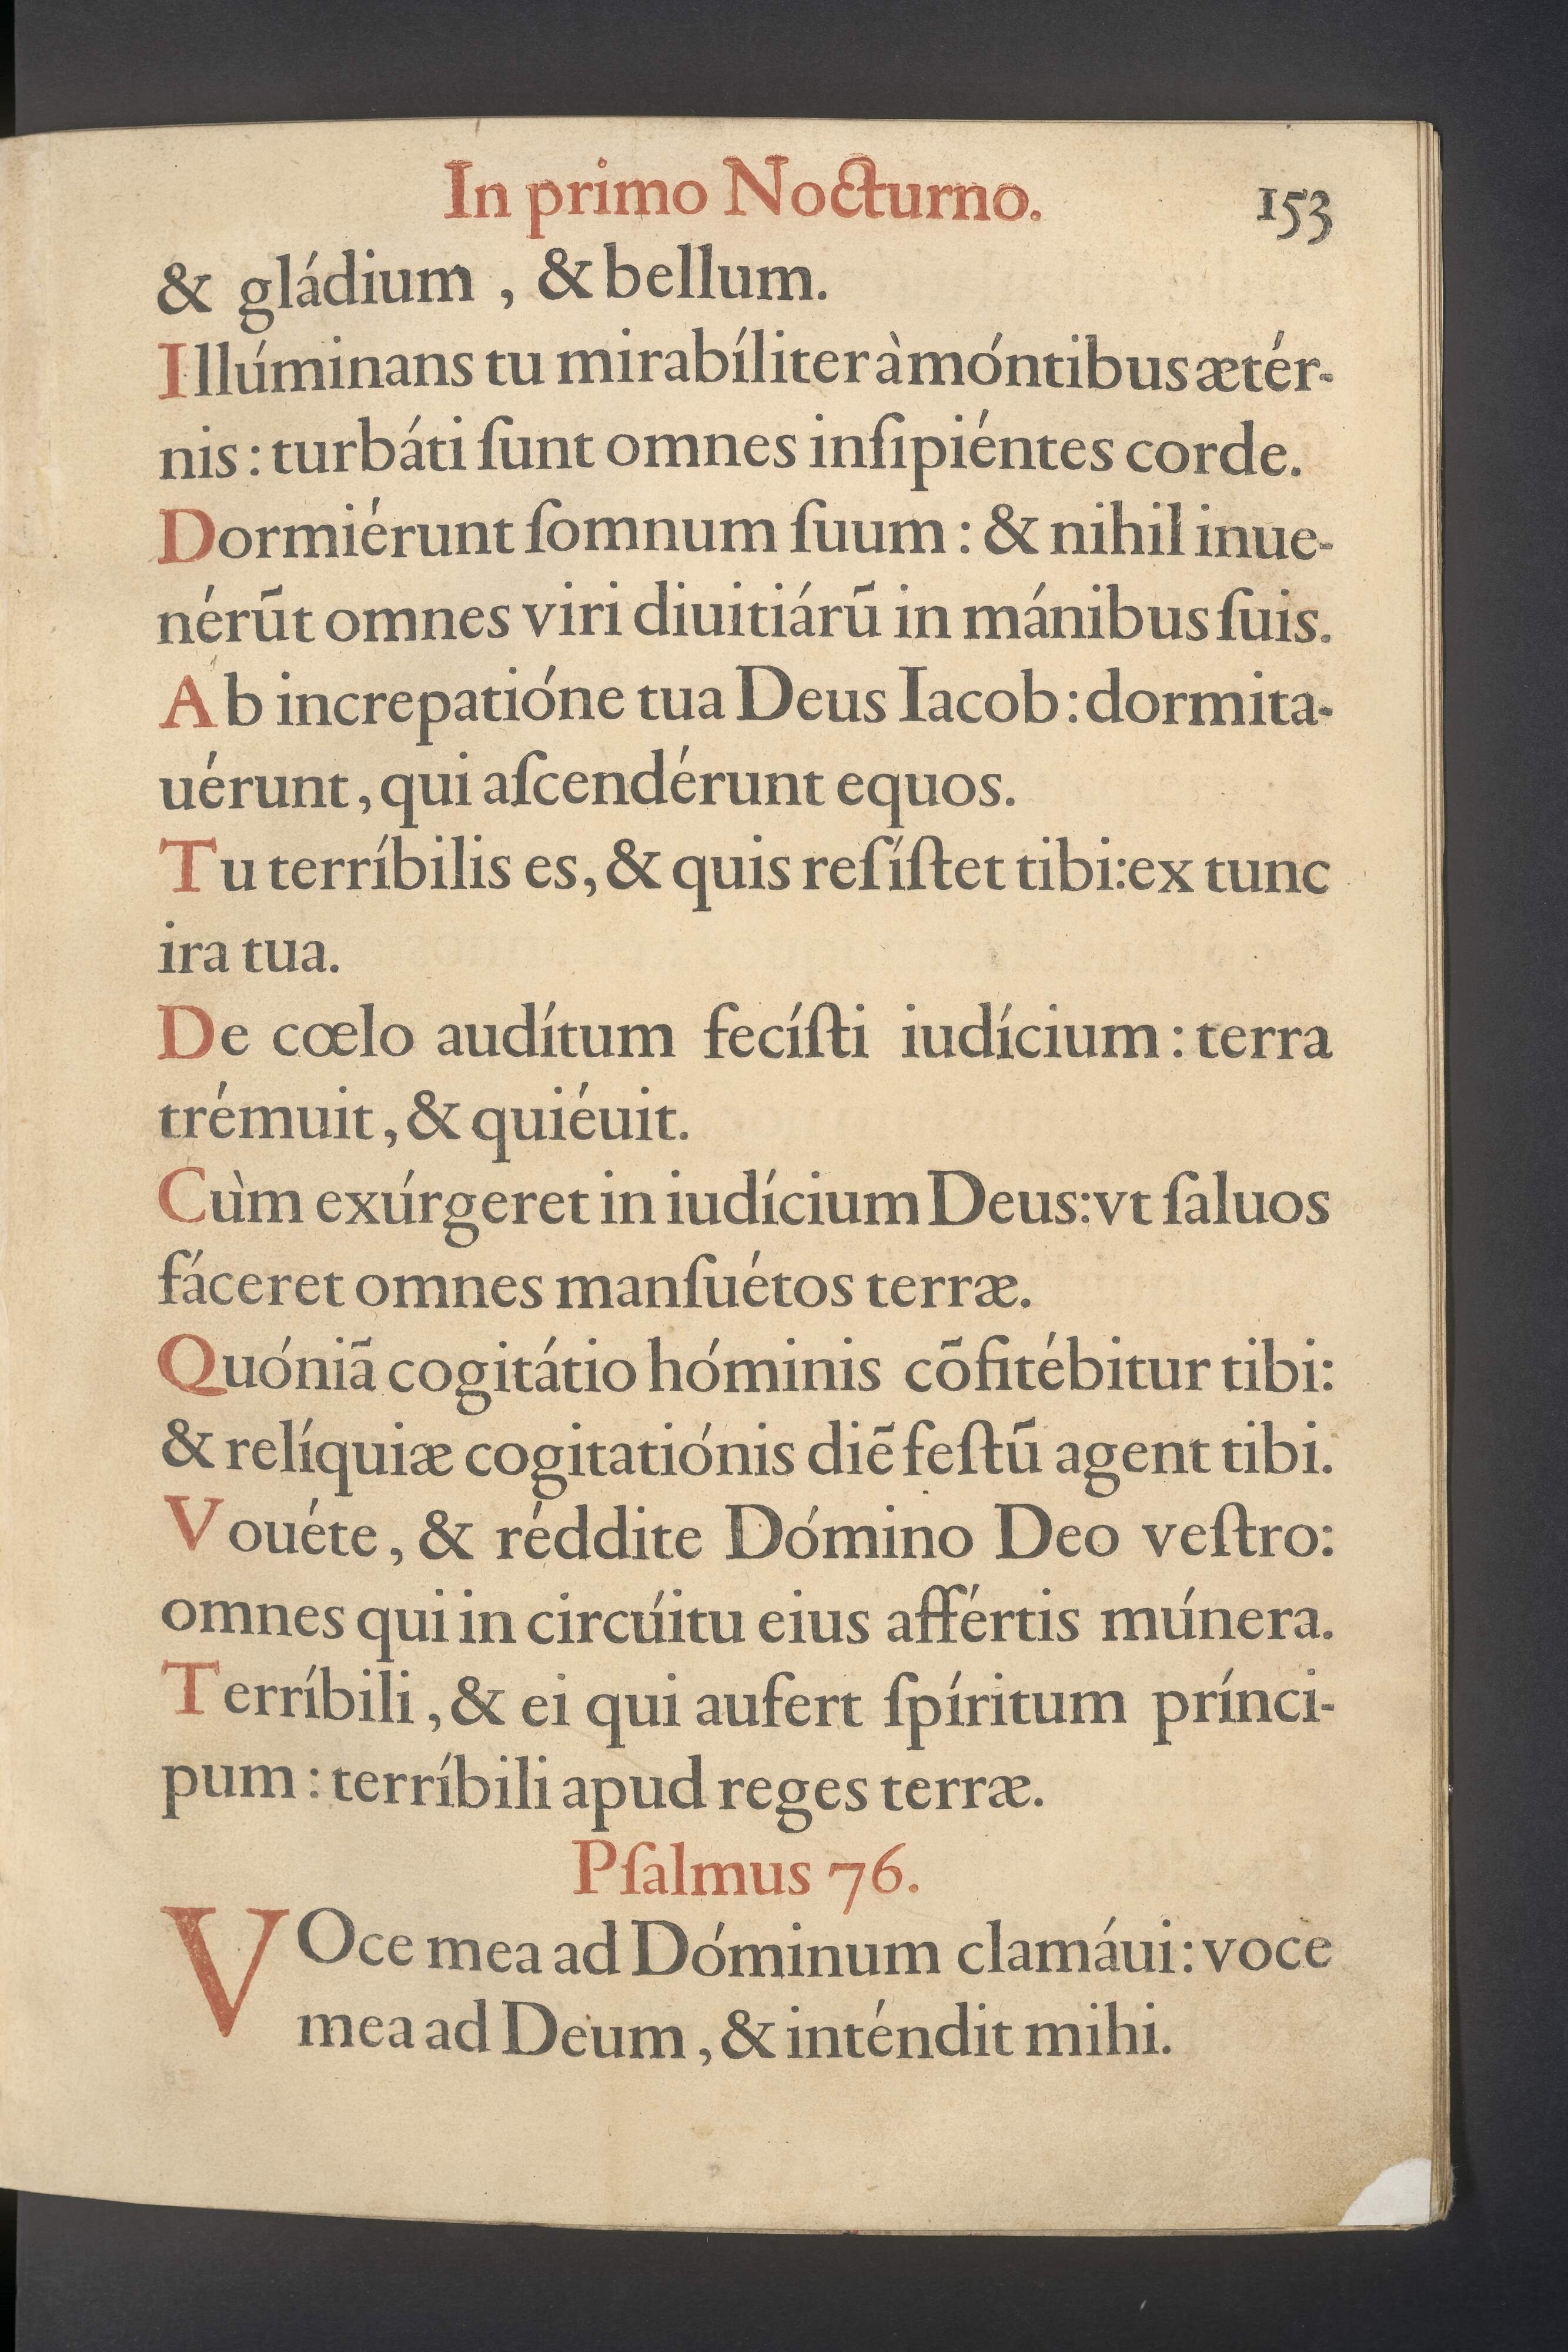 In primo Nocturno. 153
& gládium , & bellum.
Illúminans tu mirabíliter à móntibus ætér-
nis : turbáti ſunt omnes inſipiéntes corde.
Dormiérunt ſomnum ſuum : & nihil inue-
nérūt omnes viri diuitiárū in mánibus ſuis.
Ab increpatióne tua Deus Iacob : dormita-
uérunt, qui aſcendérunt equos.
Tu terríbilis es, & quis reſíſtet tibi: ex tunc
ira tua.
De cœlo audítum fecíſti iudícium : terra
trémuit, & quiéuit.
Cùm exúrgeret in iudícium Deus: vt ſaluos
fáceret omnes manſuétos terræ.
Quóniā cogitátio hóminis cōfitébitur tibi:
& relíquiæ cogitatiónis diē feſtū agent tibi.
Vouéte, & réddite Dómino Deo veſtro:
omnes qui in circúitu eius affértis múnera.
Terríbili, & ei qui aufert ſpíritum prínci-
pum : terríbili apud reges terræ.
Pſalmus 76.
VOce mea ad Dóminum clamáui: voce
mea ad Deum, & inténdit mihi.